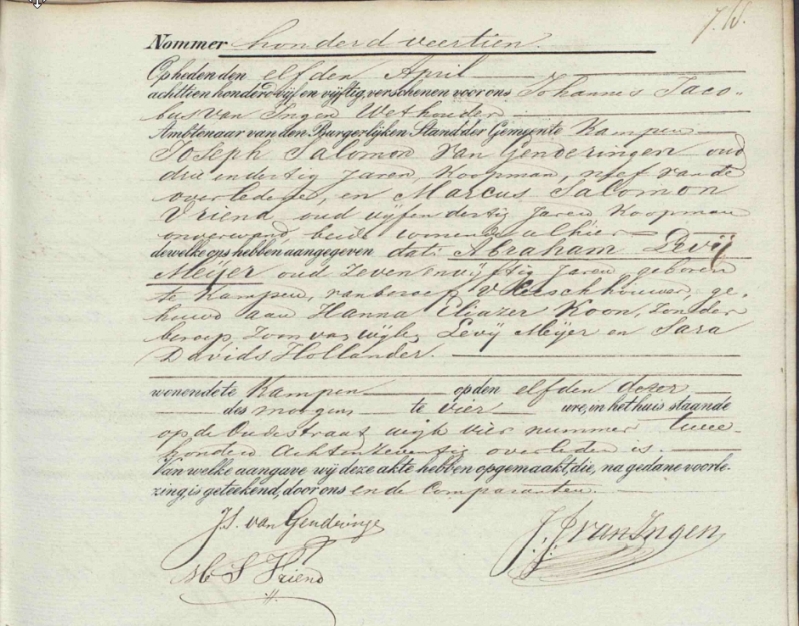 Nommer honderd veertien.
Op heden den elfden April
achttien honderd vijf en vijftig, verschenen voor ons Johannes Jaco-
bus van Ingen Wethouder
Ambtenaar van den Burgerlijken Stand der Gemeente Kampen
Joseph Salomon van Genderingen oud
drie en dertig Jaren, Koopman, neef van de
overledene, en Marcus Salomon
Vriend oud vijf en dertig Jaren Koopman
onverwand, beide wonende alhier
dewelke ons hebben aangegeven dat: Abraham Levij
Meijer oud Zeven en vijftig Jaren geboren
te Kampen, van beroep Vleeschhouwer, ge-
huwd aan Hanna Eliazer Koon, Zonder
beroep, Zoon van wijle, Levij Meijer en Sara
Davids Hollander.
wonende te Kampen op den elfden dezer
des morgens te vier ure, in het huis staande
op de Oudestraat wijk vier nummer twee-
honderd Acht en Zeventig overleden is.
Van welke aangave wij deze akte hebben opgemaakt, die, na gedane voorle-
zing, is geteekend, door ons en de Comparanten.
J.S. van Genderinge
J.J. van Ingen
M S Vriend